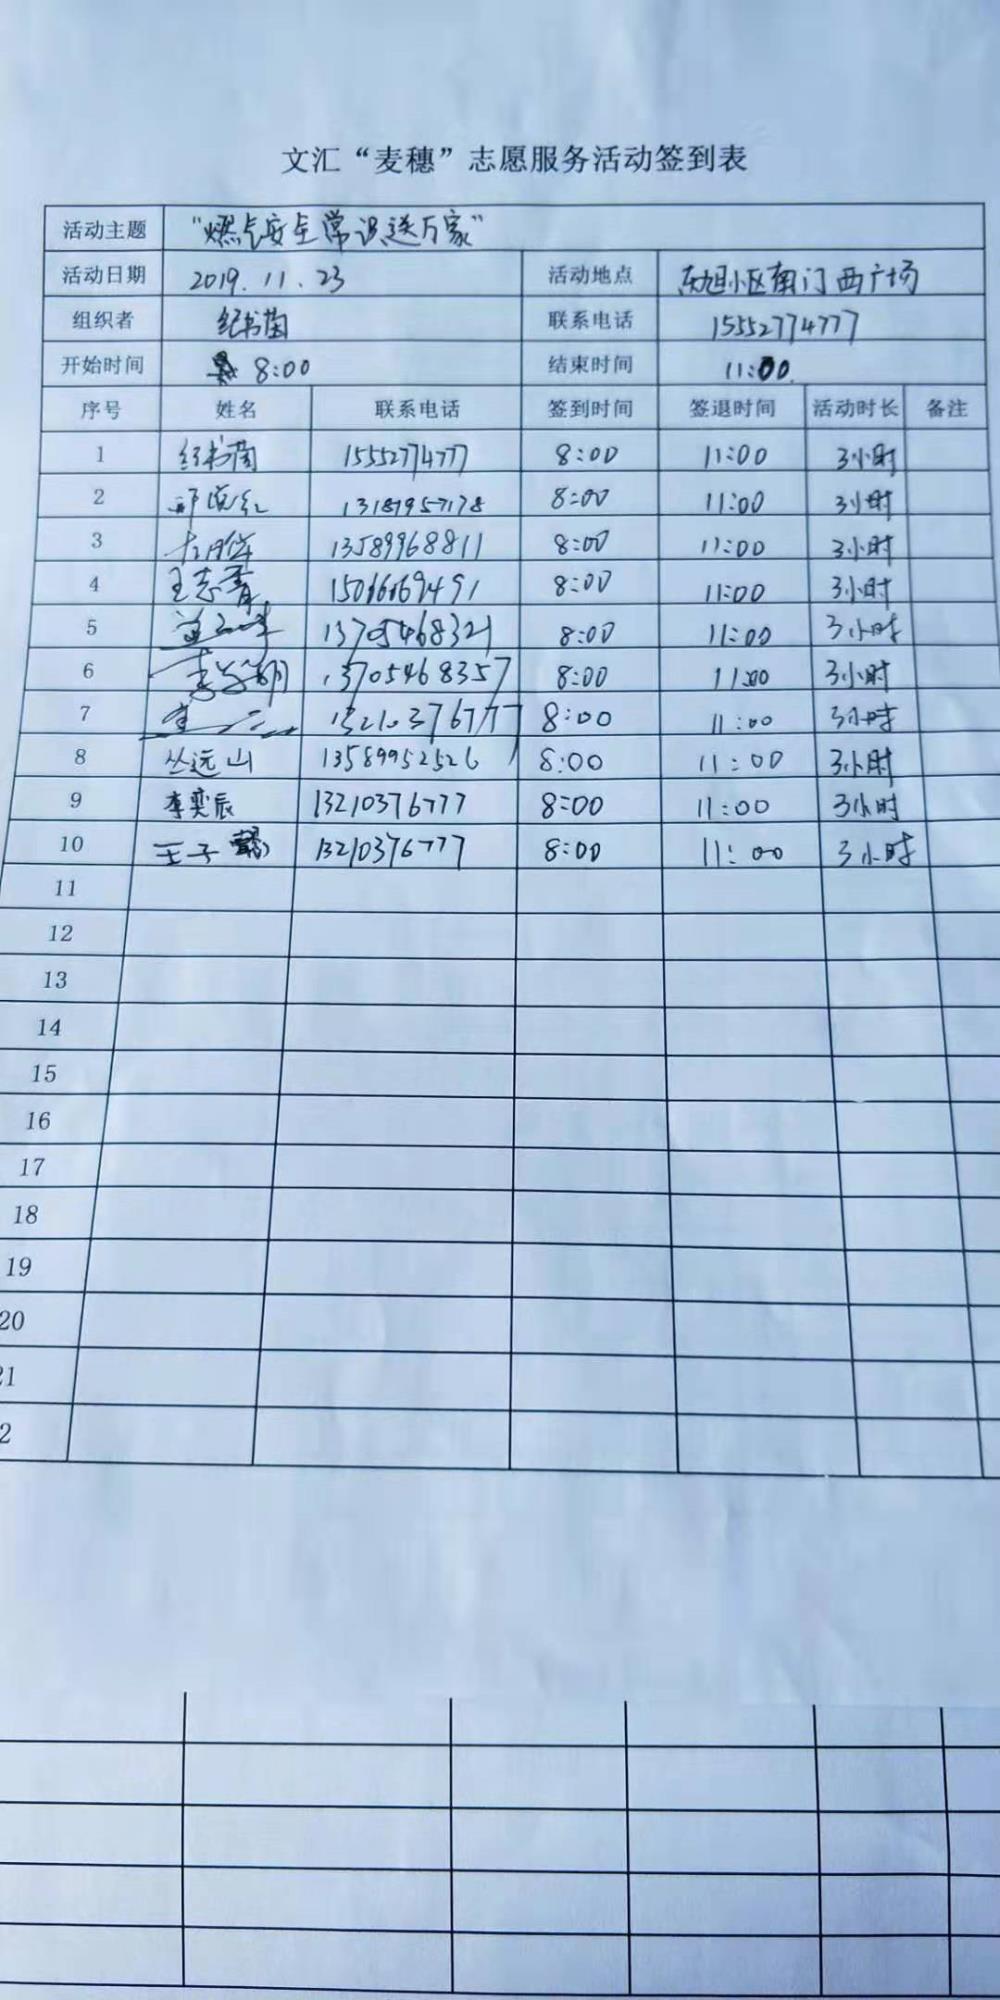 文汇“麦穗”志愿服务活动签到表
活动主题 “燃气安全常识送万家”
活动日期 2019.11.23 活动地点 东旭小区南门西广场
组织者 纪书菌 联系电话 15552774777
开始时间 8:00 结束时间 11:00
序号 姓名 联系电话 签到时间 签退时间 活动时长 备注
1 纪书菌 15552774777 8:00 11:00 3小时
2 13181957178 8:00 11:00 3小时
3 13589968811 8:00 11:00 3小时
4 王志青 15066169491 8:00 11:00 3小时
5 13705468321 8:00 11:00 3小时
6 13705468357 8:00 11:00 3小时
7 13210376777 8:00 11:00 3小时
8 丛远山 13589952526 8:00 11:00 3小时
9 李奕辰 13210376777 8:00 11:00 3小时
10 王子 13210376777 8:00 11:00 3小时
11
12
13
14
15
16
17
18
19
20
21
2